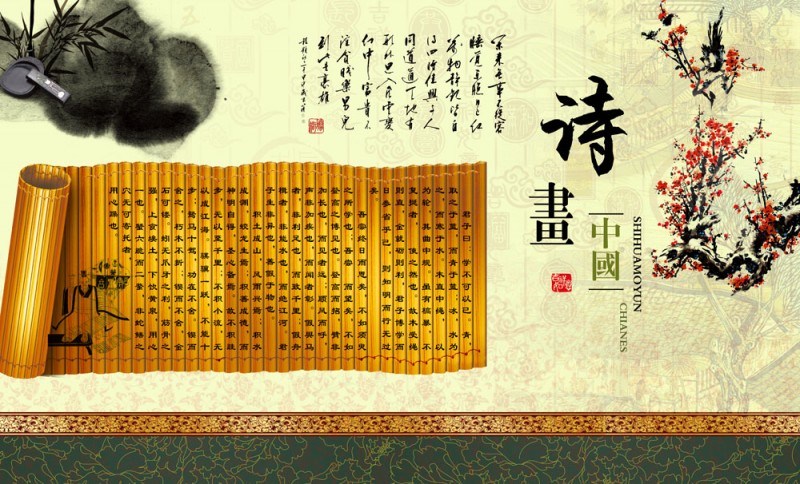 闲来无事不从容
睡觉东窗日已红
万物静观皆自
得四时佳兴与人
同道通天地有
形外思入风云变
态中富贵不
淫贫贱乐男儿
到此是豪雄
詩
畫
中國
SHIHUAMOYUN
CHIANES
君子曰：学不可以已。青，
取之于蓝，而青于蓝；冰，水为
之，而寒于水。木直中绳，
以为轮，其曲中规，虽有槁暴，不
复挺者，使之然也。故木受绳
则直，金就砺则利，君子博学而
日参省乎己，则知明而行无过
矣。
吾尝终日而思矣，不如须臾
之所学也；吾尝跂而望矣，不如
登高之博见也。登高而招，臂非
加长也，而见者远；顺风而呼，
声非加疾也，而闻者彰。假舆马
者，非利足也，而致千里；假舟
楫者，非能水也，而绝江河。君
子生非异也，善假于物也。
积土成山，风雨兴焉；积水
成渊，蛟龙生焉；积善成德，而
神明自得，圣心备焉。故不积跬
步，无以至千里；不积小流，无
以成江海。骐骥一跃，不能十
步；驽马十驾，功在不舍。锲而
舍之，朽木不折；锲而不舍，金
石可镂。蚓无爪牙之利，筋骨之
强，上食埃土，下饮黄泉，用心
一也。蟹六跪而二螯，非蛇鳝之
穴无可寄托者，
用心躁也。